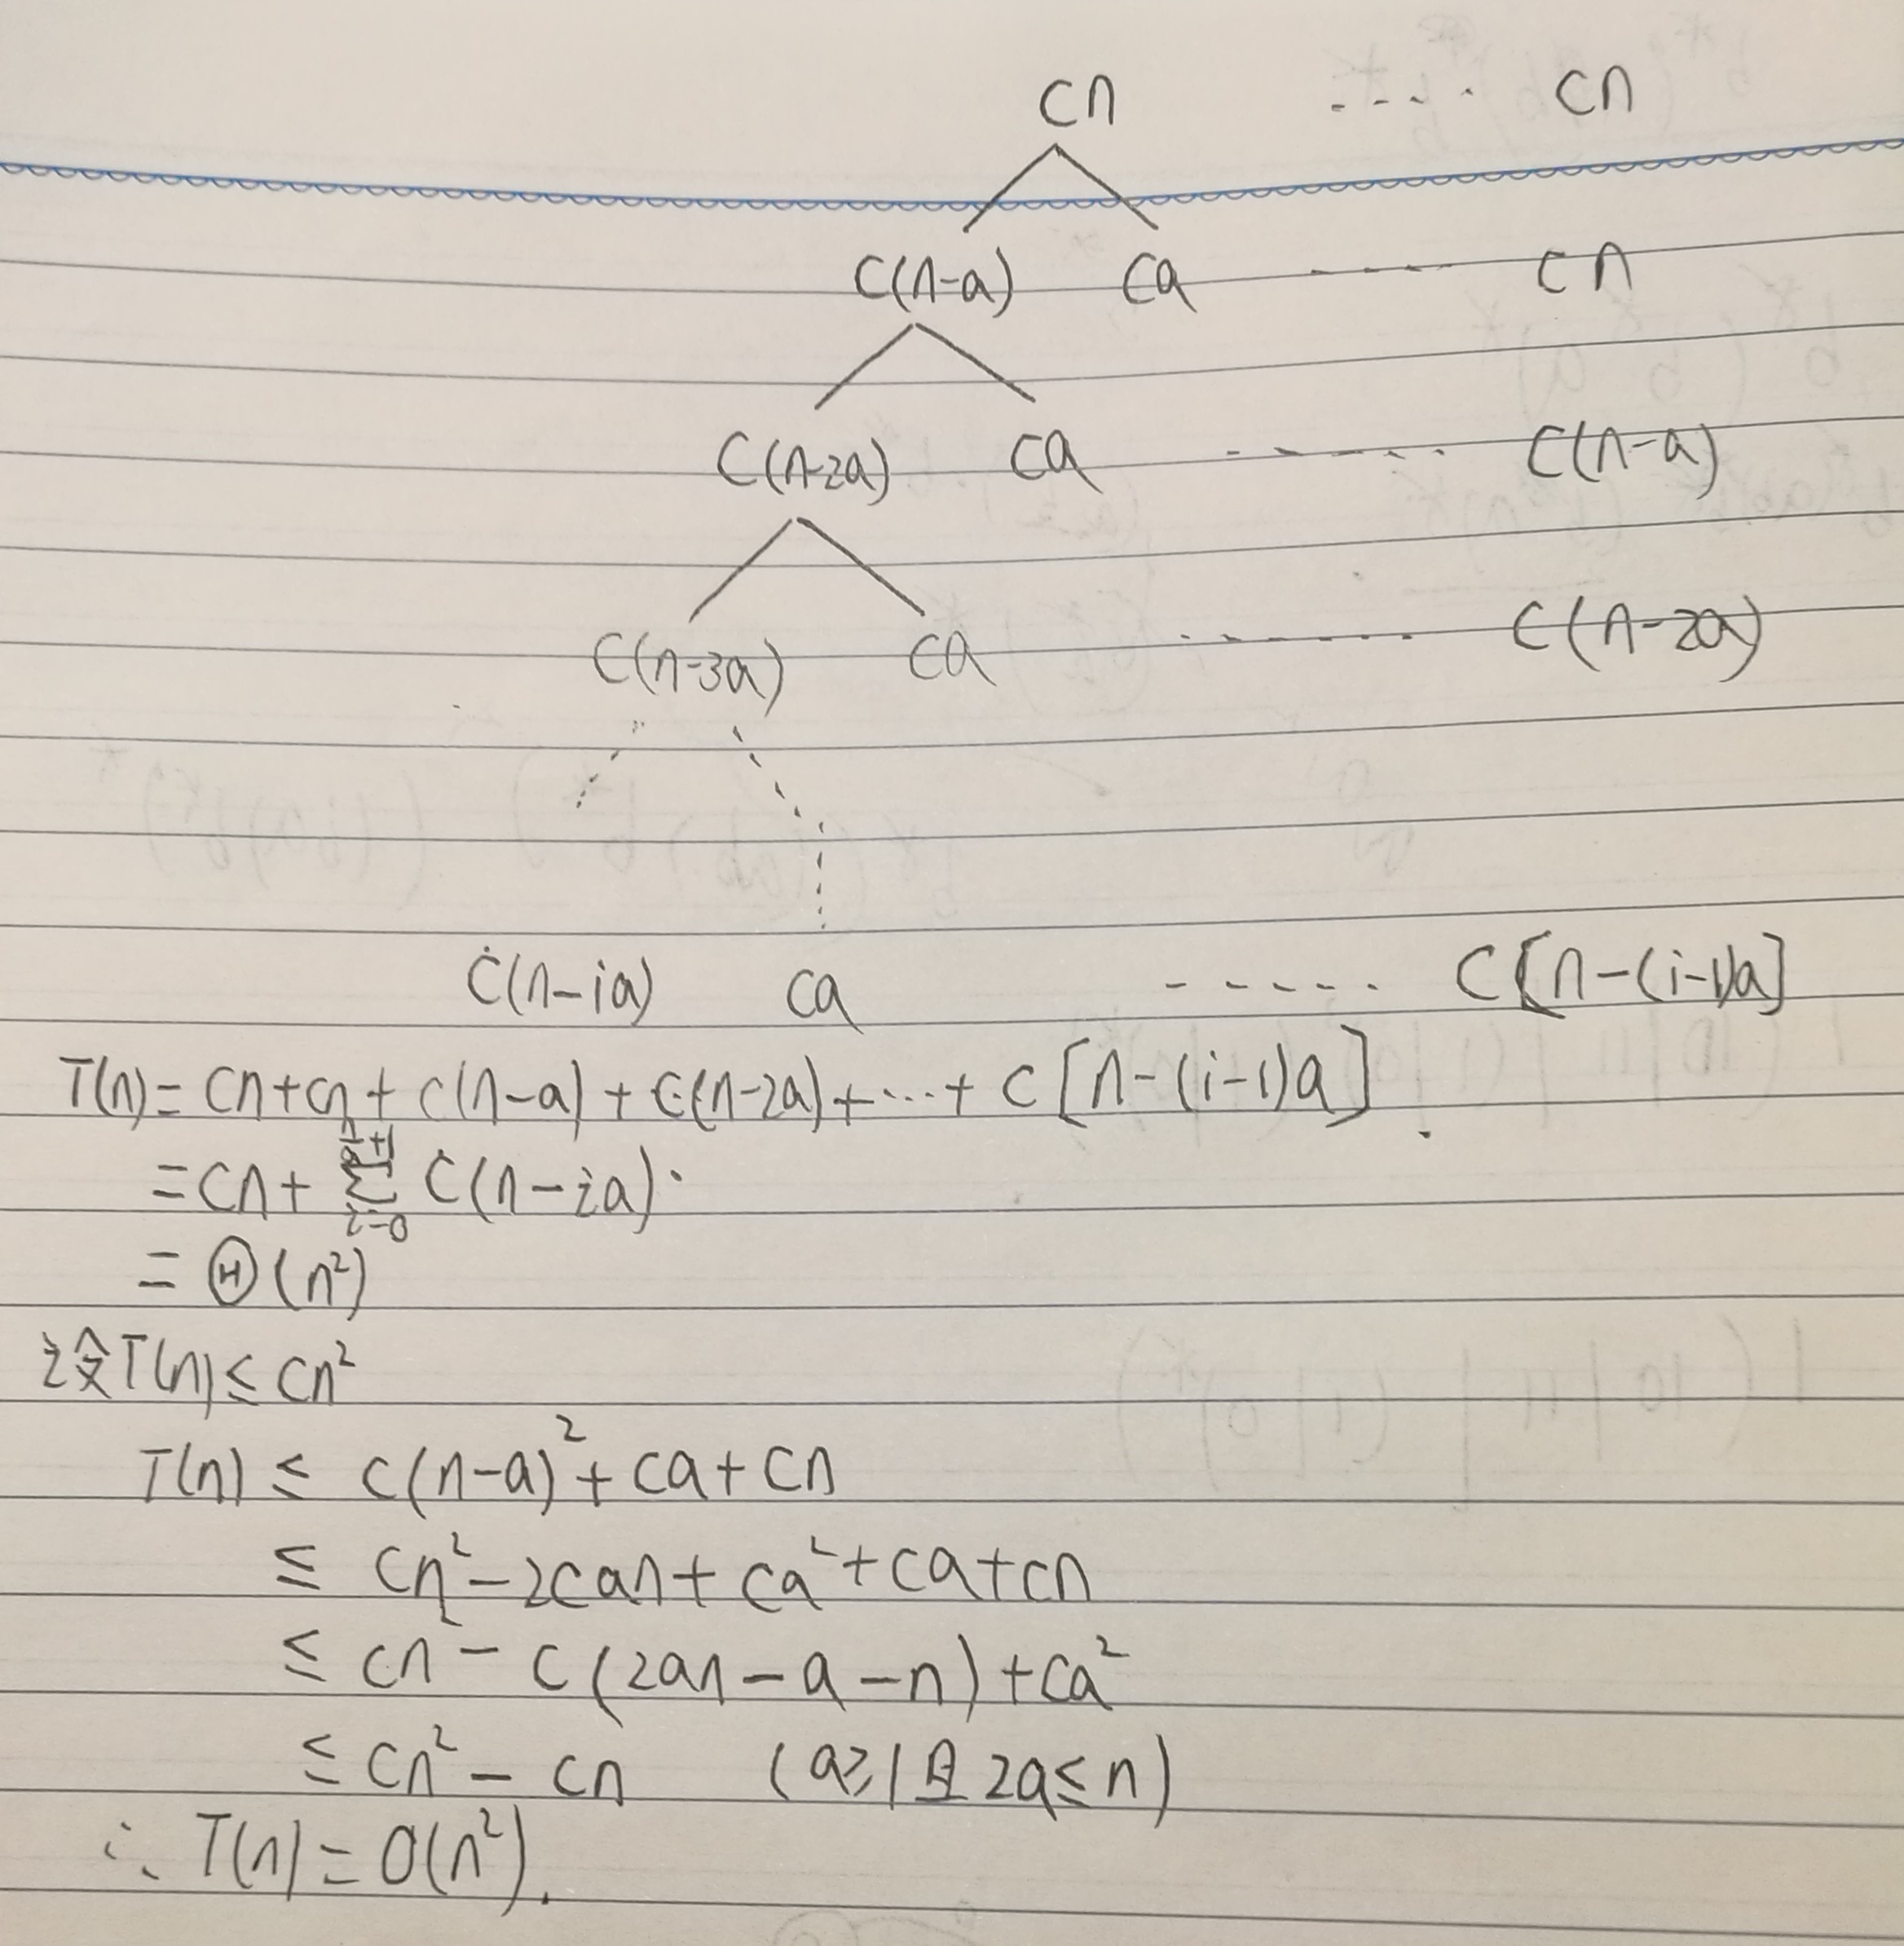 cn ···· cn
c(n-a) ca ---- cn
c(n-2a) ca ----- c(n-a)
c(n-3a) ca ------ c(n-2a)
c(n-ia) ca ----- c[n-(i-1)a]
T(n)= cn+cn+ c(n-a) + c(n-2a)+···+ c[n-(i-1)a].
=cn+ ∑_{i=0}^{n/a+1} c(n-ia)
= Θ(n²)
设T(n)≤cn²
T(n) ≤ c(n-a)²+ca+cn
≤ cn²-2can+ca²+ca+cn
≤ cn²-c(2an-a-n)+ca²
≤ cn²-cn (a≥1且2a≤n)
∴ T(n)=O(n²).